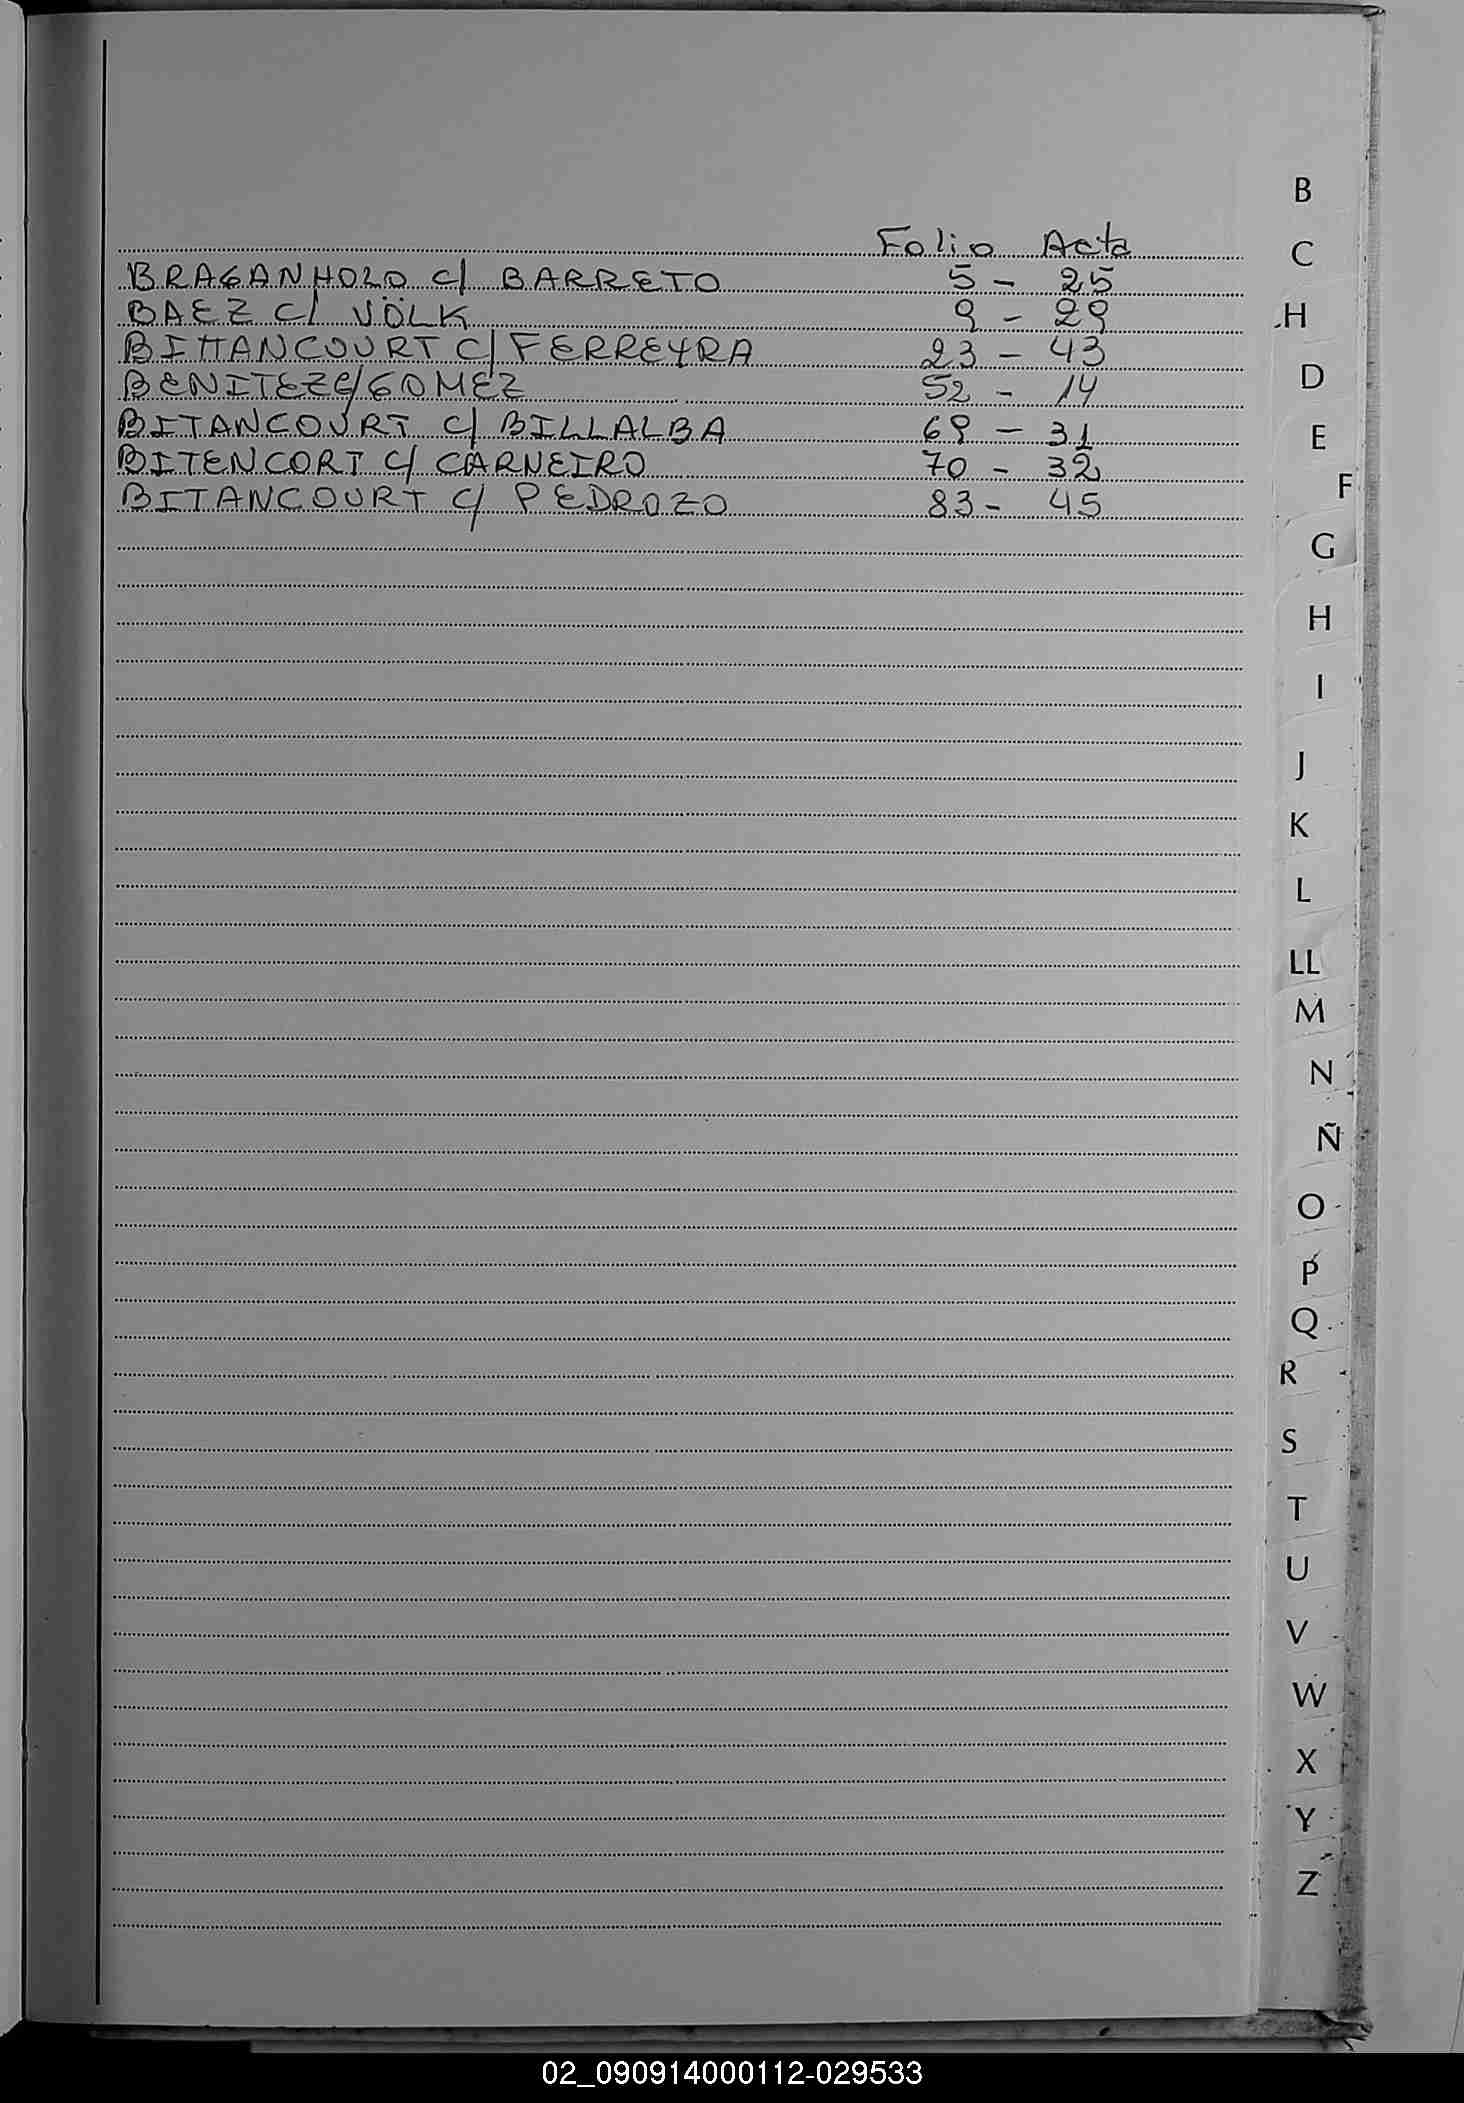 Folio Acta
BRAGANHOLO c/ BARRETO 5 - 25
BAEZ c/ VÖLK 9 - 29
BITTANCOURT c/ FERREYRA 23 - 43
BENITEZ c/ GOMEZ 52 - 14
BITANCOURT c/ BILLALBA 69 - 31
BITENCORT c/ CARNEIRO 70 - 32
BITANCOURT c/ PEDROZO 83 - 45
B
C
H
D
E
F
G
H
I
J
K
L
LL
M
N
Ñ
O
P
Q
R
S
T
U
V
W
X
Y
Z
02_090914000112-029533